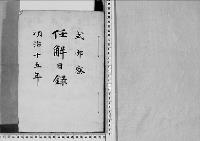 式部寮
任解日録
明治十五年